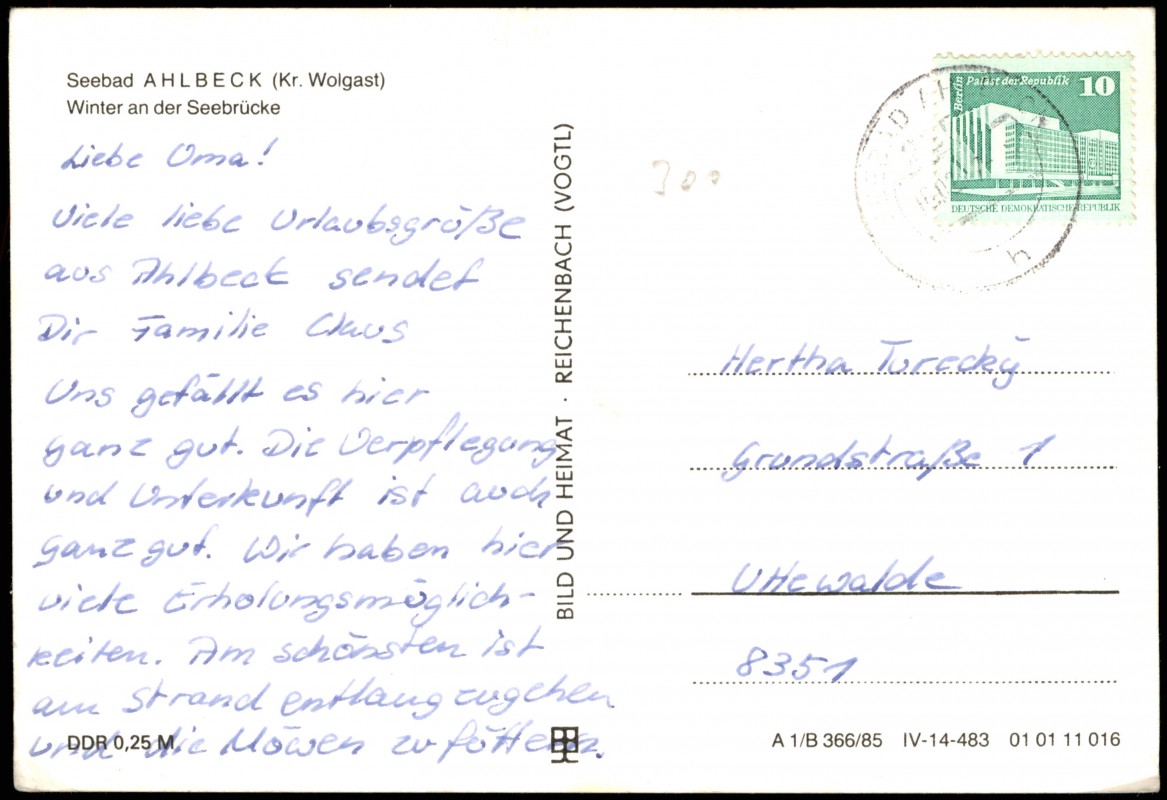 Seebad AHLBECK (Kr. Wolgast)
Winter an der Seebrücke
Liebe Oma!
Viele liebe Urlaubsgrüße
aus Ahlbeck sendet
Dir Familie Claus
Uns gefällt es hier
ganz gut. Die Verpflegung
und Unterkunft ist auch
ganz gut. Wir haben hier
viele Erholungsmöglich-
keiten. Am schönsten ist
am Strand entlangzugehen
und die Möwen zu füttern.
DDR 0,25 M
BILD UND HEIMAT · REICHENBACH (VOGTL)
300
Berlin Palast der Republik 10
DEUTSCHE DEMOKRATISCHE REPUBLIK
h
Hertha Turecký
Grundstraße 1
Uttewalde
8351
A 1/B 366/85 IV-14-483 01 01 11 016